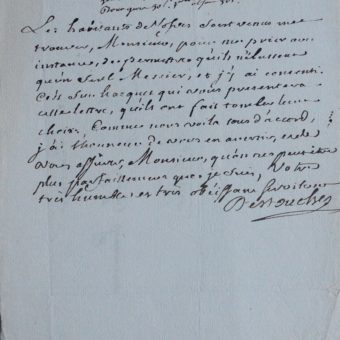 Les habitants de sont venus me
trouver, Monsieur, pour me prier avec
instance, de permettre qu'ils n'élussent
qu'un seul Messier, et j'y ai consenti.
C'est qui vous presentera
cette lettre, qu'ils ont fait tomber leur
choix. Comme nous voila tous d'accord,
j'ai l'honneur de vous en avertir, et de
vous assurer, Monsieur, qu'on ne peut être
plus parfaitement que je suis, Votre
très humble et très obéissant serviteur